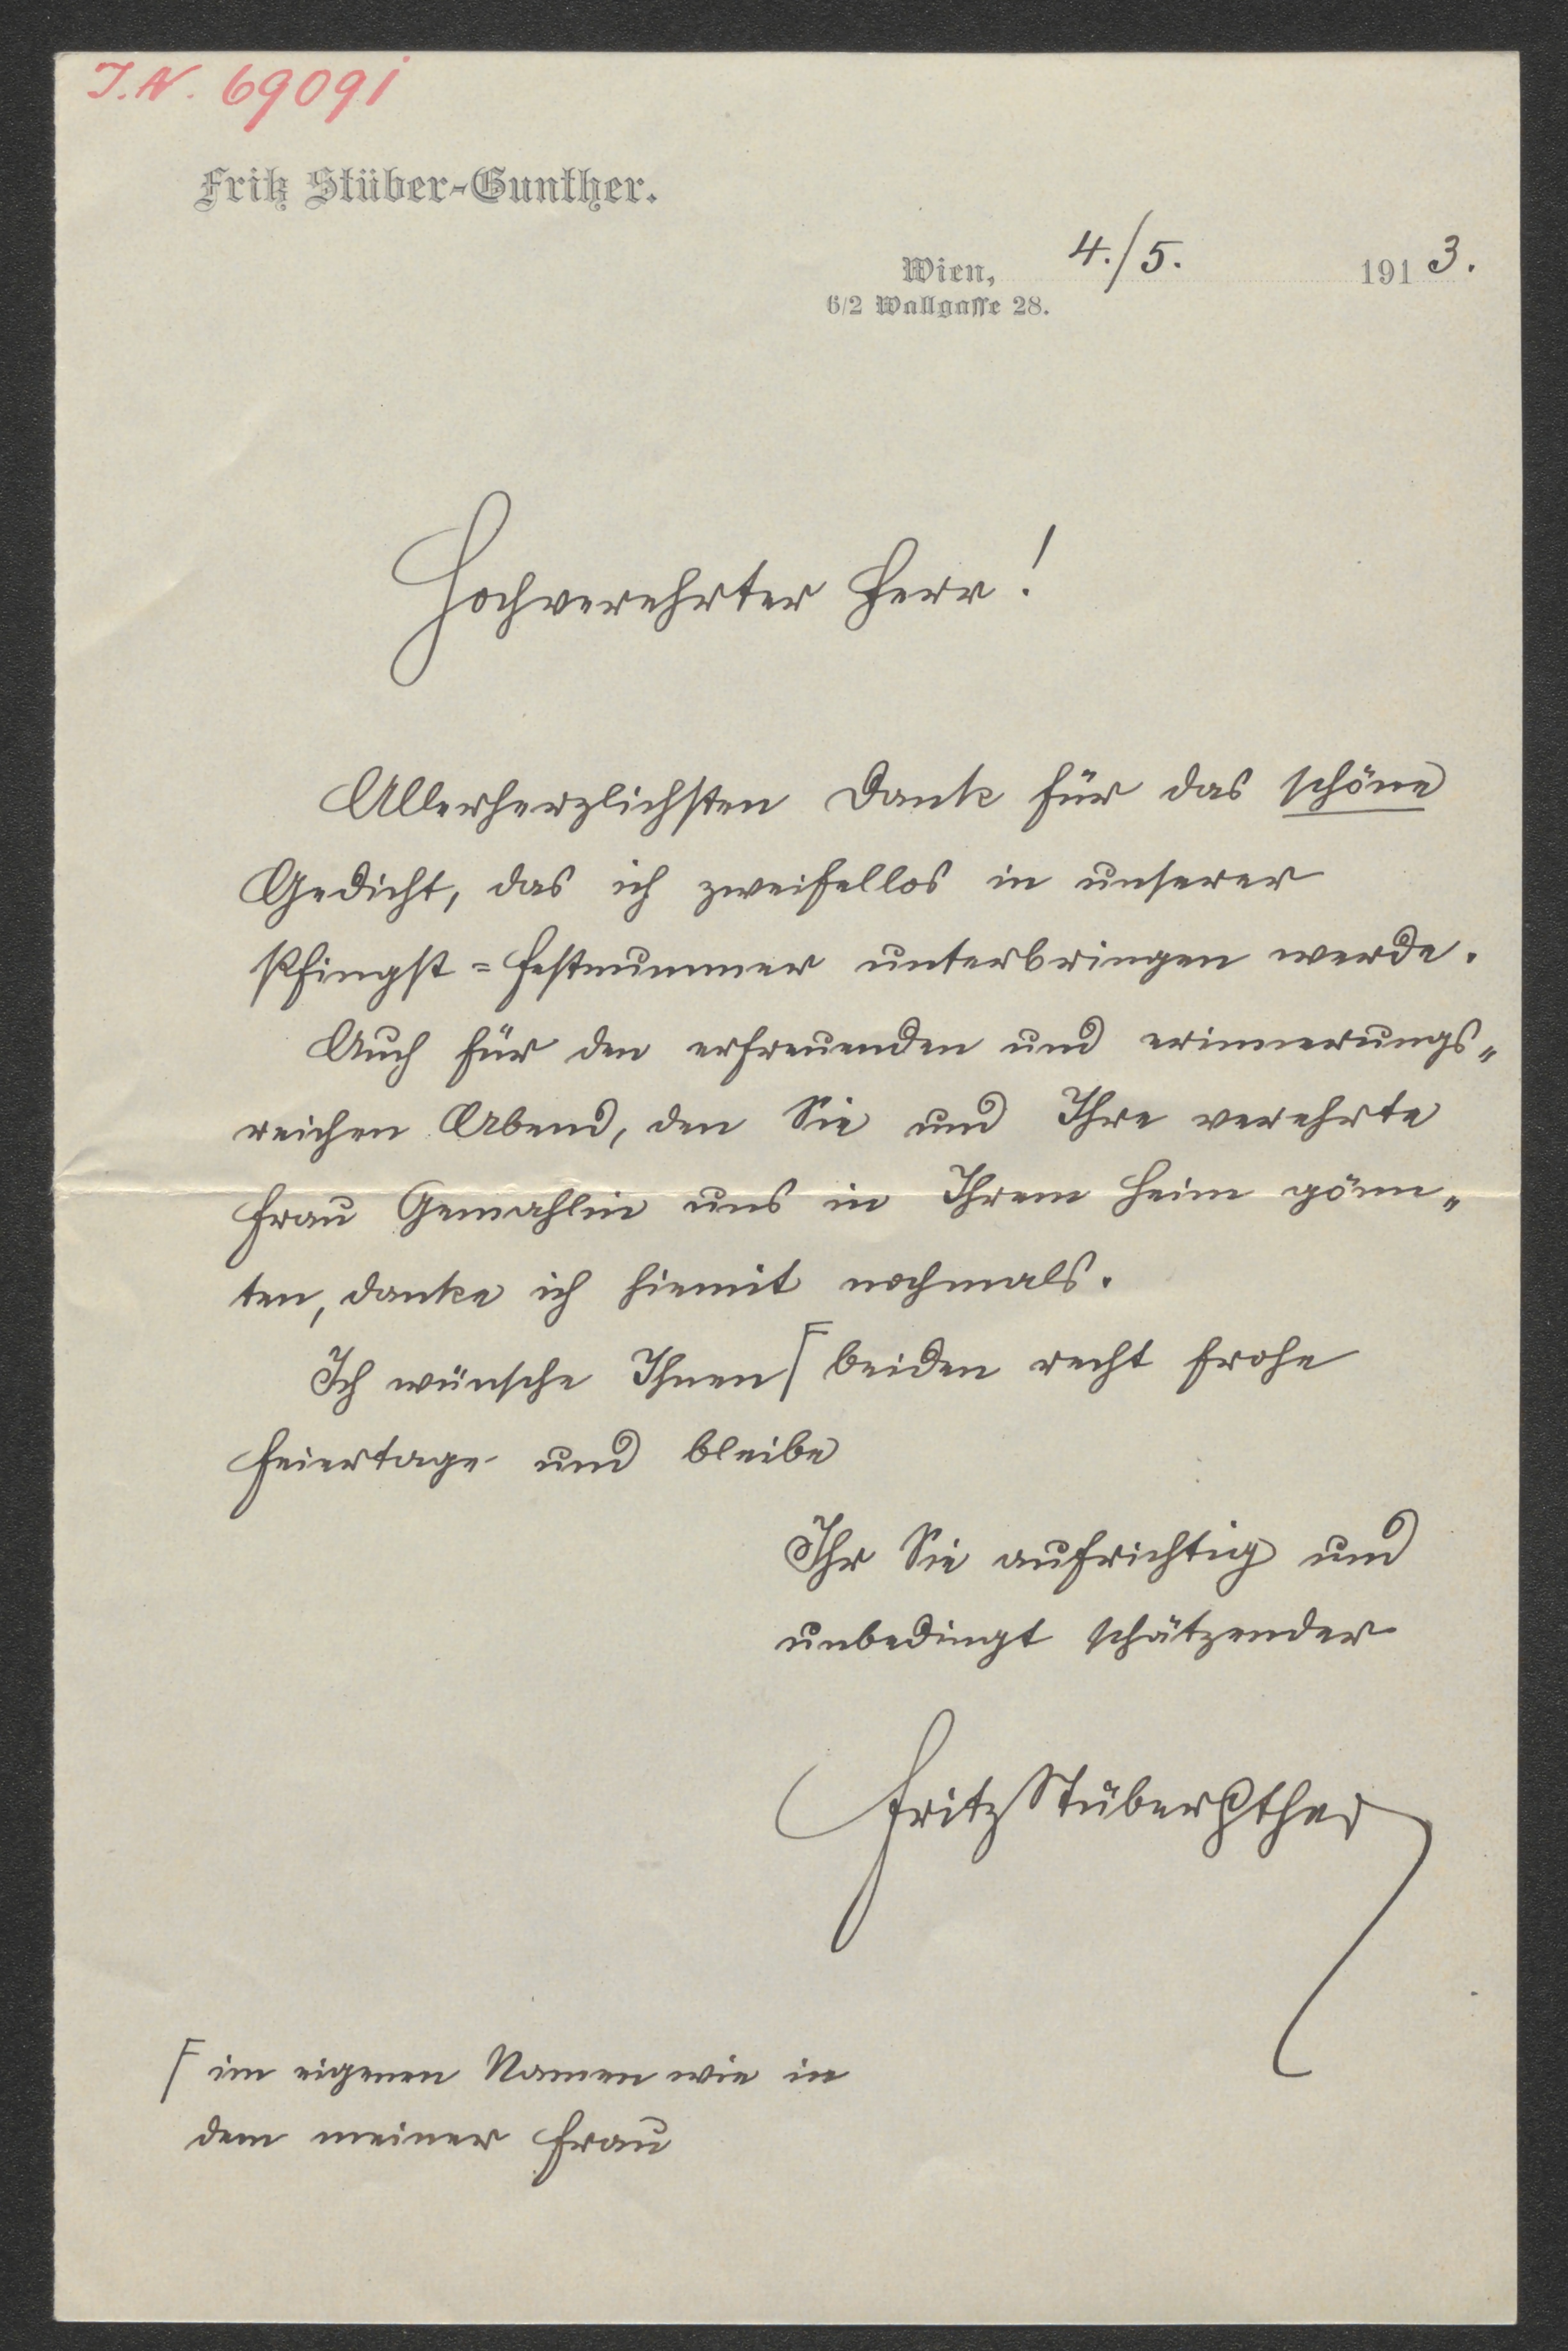 I.N. 69091
Fritz Stüber-Gunther.
Wien, 4./5. 1913.
6/2 Wallgasse 28.
Hochverehrter Herr!
Allerherzlichsten Dank für das schöne
Gedicht, das ich zweifellos in unserer
Pfingst=Festnummer unterbringen werde.
Auch für den erfreuenden und erinnerungs„
reichen Abend, den Sie und Ihre verehrte
Frau Gemahlin uns in Ihrem Heim gönn„
ten, danke ich hiemit nochmals.
Ich wünsche Ihnen ⌈ beiden recht frohe
Feiertage und bleibe
Ihr Sie aufrichtig und
unbedingt schätzender
Fritz StüberGther
⌈ im eigenen Namen wie in
dem meiner Frau